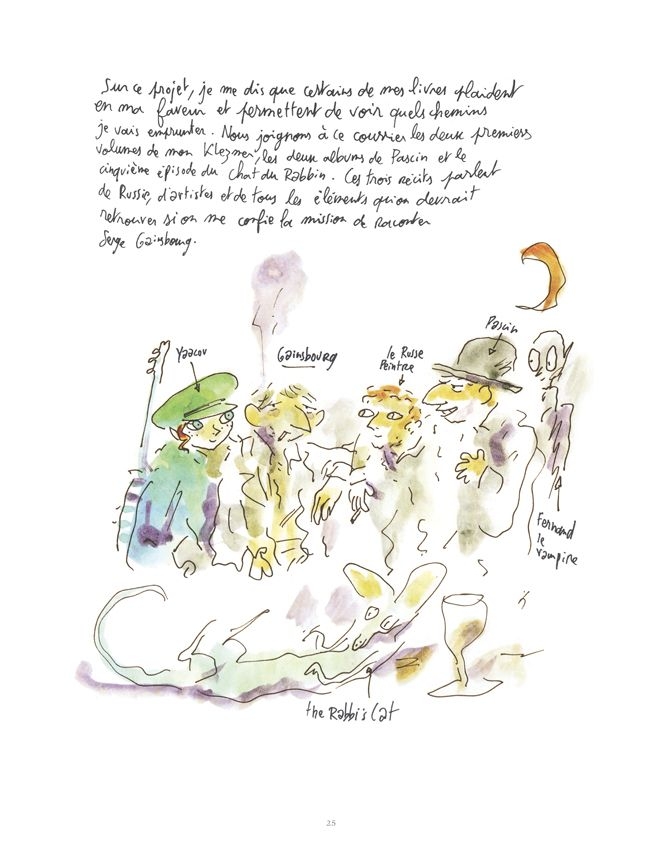 Sur ce projet, je me dis que certains de mes livres plaident
en ma faveur et permettent de voir quels chemins
je vais emprunter. Nous joignons à ce courrier les deux premiers
volumes de mon Klezmer, les deux albums de Pascin et le
cinquième épisode du Chat du Rabbin. Ces trois récits parlent
de Russie, d'artistes et de tous les éléments qu'on devrait
retrouver si on me confie la mission de Raconter
Serge Gainsbourg.
Pascin
Yaacov
Gainsbourg
le Russe
Peintre
Fernand
le
vampire
the Rabbi's Cat
25